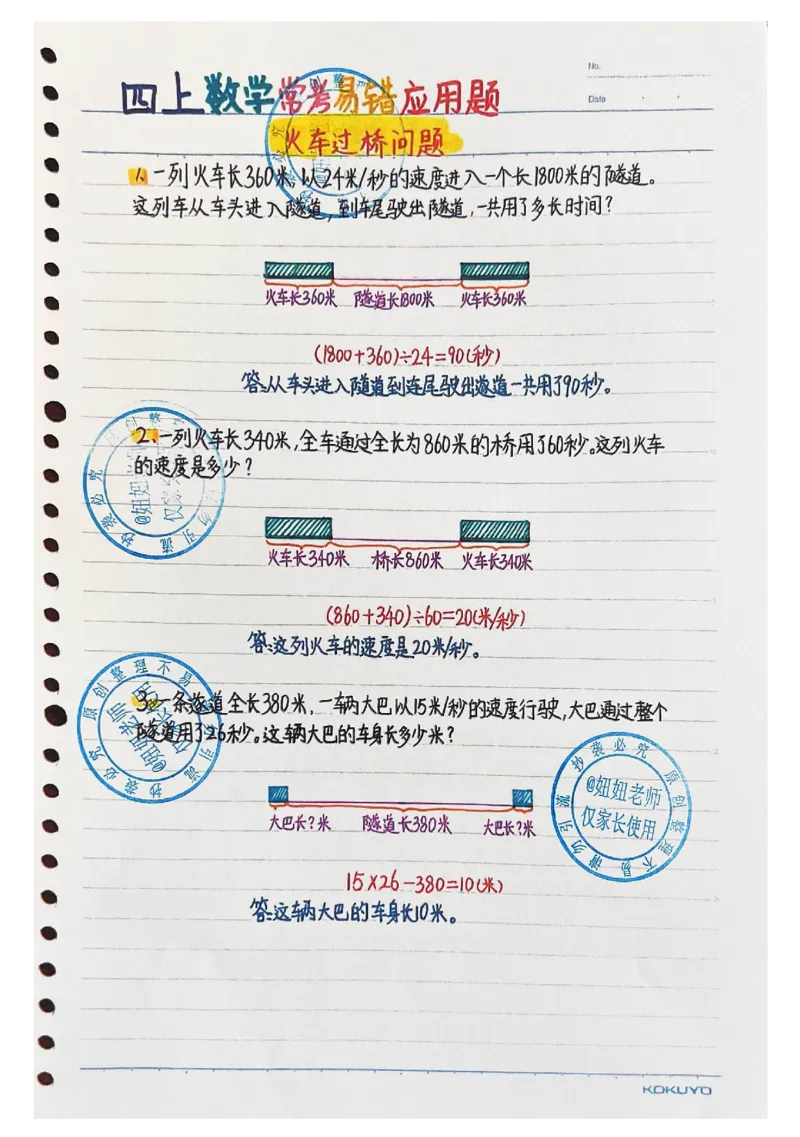 No.
Date
四上数学常考易错应用题
火车过桥问题
1、一列火车长360米,以24米/秒的速度进入一个长1800米的隧道。
这列车从车头进入隧道,到车尾驶出隧道,一共用了多长时间?
火车长360米 隧道长1800米 火车长360米
(1800+360)÷24=90(秒)
答:从车头进入隧道到连尾驶出遂道一共用了90秒。
2、一列火车长340米,全车通过全长为860米的桥用了60秒。这列火车
的速度是多少?
火车长340米 桥长860米 火车长340米
(860+340)÷60=20(米/秒)
答:这列火车的速度是20米/秒。
3、一条遂道全长380米,一辆大巴以15米/秒的速度行驶,大巴通过整个
隧道用了26秒。这辆大巴的车身长多少米?
大巴长?米 隧道长380米 大巴长?米
15×26-380=10(米)
答:这辆大巴的车身长10米。
原创整理不易
请勿引流
抄袭必究
@妞妞老师
仅家长使用
KOKUYO